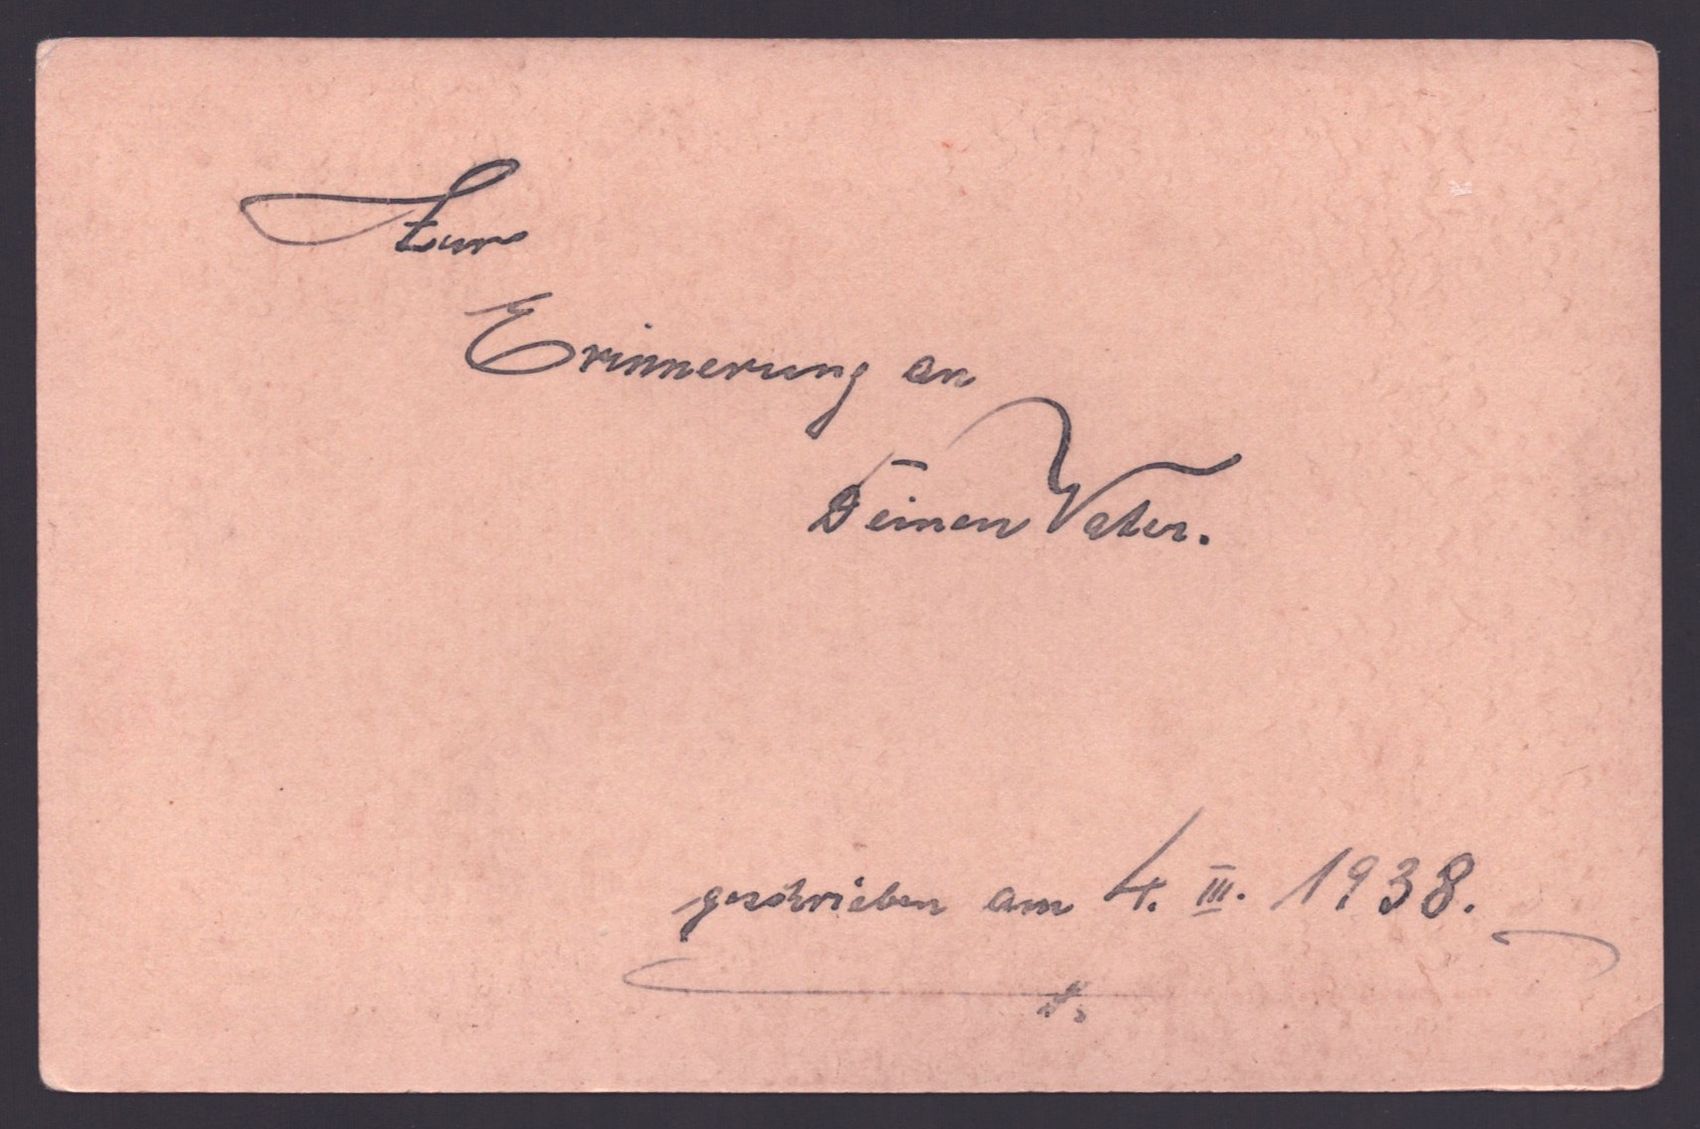 Zur
Erinnerung an
Deinen Vater.
geschrieben am 4. III. 1938.